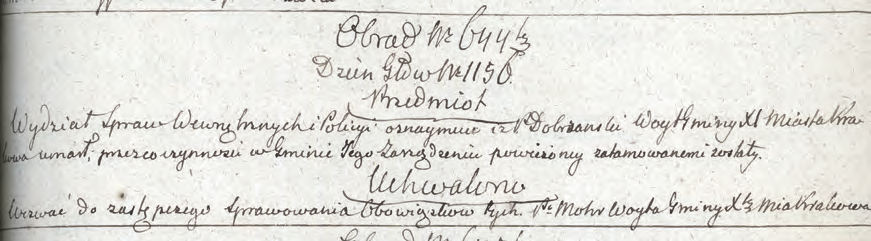 Obrad Nr 644 1/2
Dzien. Głów Nr 1156
Przedmiot
Wydział Spraw Wewnętrznych i Policyi oznaymuie iż P. Dobrzanski Woyt Gminy XI Miasta Kra
kowa umarł, przez co czynności w Gminie Jego Zarządzeniu powierzoney zatamowanemi zostały.
Uchwalono
Wezwać do zastępczego Sprawowania Obowiązków tych. Pa Mohr Woyta Gminy X tz Mia Krakowa